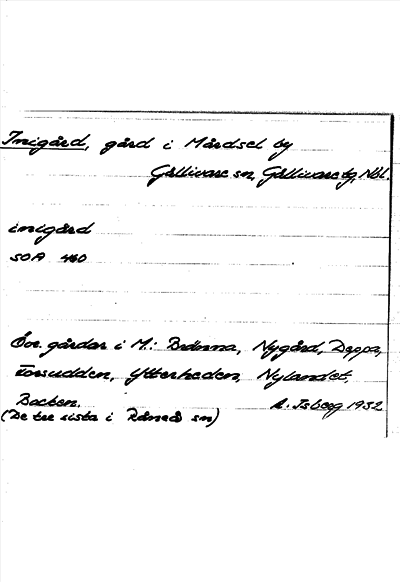 Inigård, gård i Mårdsel by
Gällivare sn, Gällivare tg, Nbl.
inigård
SOA 460
Öv. gårdar i M.: Brånna, Nygård, Deppa,
Forsudden, Ytterheden, Nylandet,
Backen.
A. Isberg 1932
(De tre sista i Råneå sn)